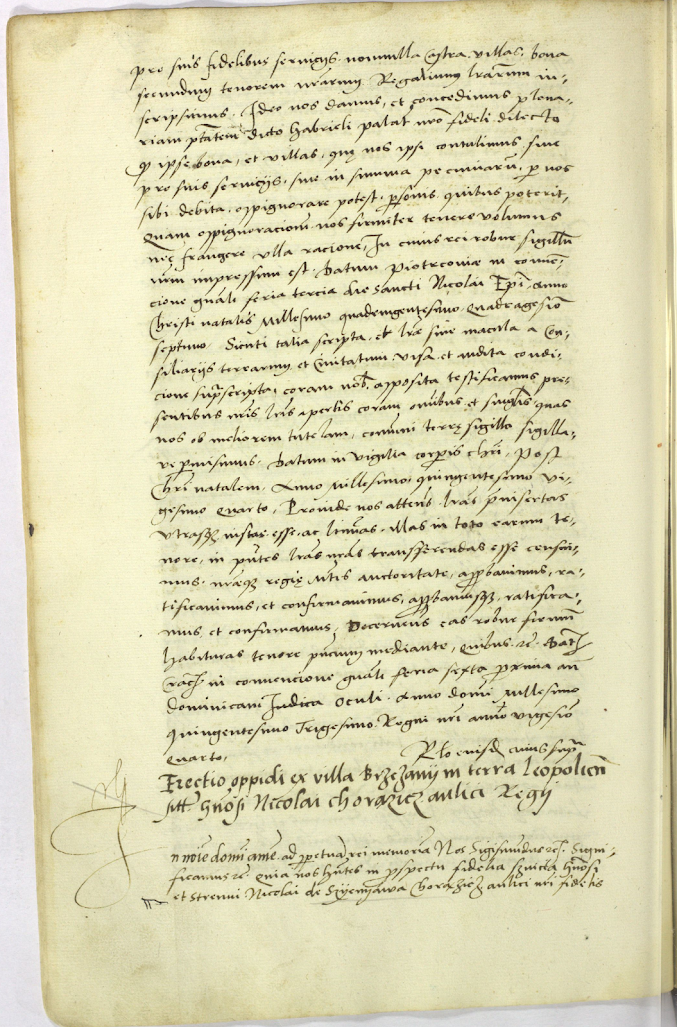 pro suis fidelibus servicijs nonnulla castra villas, bona
secundum tenorem nrarum Regalium lrarum in-
scripsimus. Ideo nos damus, et concedimus plena-
riam ptatem dicto Gabrieli palat nro fideli dilecto
qd ipse bona, et villas, quę nos ipsi contulimus, sive
pro suis servicijs, sive in summa pecuniarum, p nos
sibi debita, oppignorare potest, psonis, quibus poterit.
Quam oppignoracionem nos firmiter tenere volumus
nec frangere ulla racione, In cuius rei robur sigillum
nrm impressum est. Datum Piotrcoviæ in conven-
cione gnali feria tercia die Sancti Nicolai Epi, Anno
Christi natalis Millesimo quadringentesimo Quadragesimo
septimo. Sicuti talia scripta, et lræ sine macula a Con-
siliarijs terrarum, et Civitatum visa, et audita condi-
cione supscripta, coram nob apposita testificamur, pre-
sentibus nris lris apertis coram omibus et singlis, quas
nos ob meliorem tutelam, comuni terrę sigillo sigilla-
re pmisimus. Datum in vigilia corpis chri, Post
Chri natalem, Anno Millesimo quingentesimo vi-
gesimo Quarto, Proinde nos attens lras pinsertas
utrasq iustas esse, ac ltimas, illas in toto earum te-
nore, in pntes lras nras transferendas esse censui-
mus, nraq regię Mtis auctoritate, approbavimus, ra-
tificavimus, et confirmavimus, approbamusq, ratifica-
mus et confirmamus, Decernens eas robur firmum
habituras tenore pncium mediante, Quibus rc. Dat
Crac in convencione gnali feria sexta proxima an
dominicam Iudica Oculi. Anno domi Millesimo
quingentesimo Trigesimo. Regni nri anno vigesimo
Quarto,
Rlo eiusdem cuius supra
Erectio oppidi ex villa Brzezany in terra Leopolien
sitt. Gnosi Nicolai chorazicz aulici Regij
n noie domi ame. ad ppetua rei memoria Nos Sigismundus rc. Signi-
ficamus rc. Quia nos hntes in pspectu fidelia servicia Gnosi
et Strenui Nicolai de Syenyawa Chorazicz aulici nri fidelis